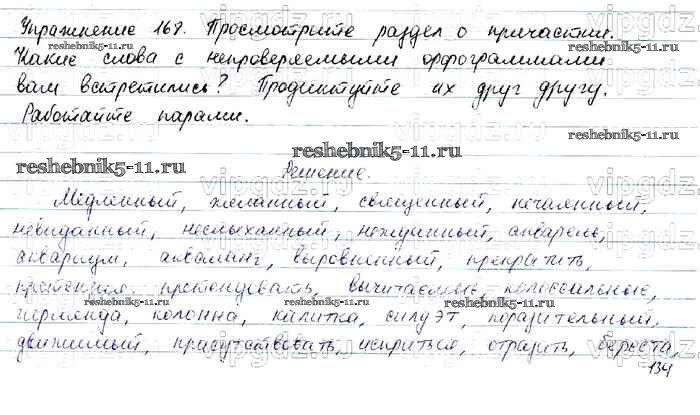 Упражнение 168. Просмотрите раздел о причастии.
Какие слова с непроверяемыми орфограммами
reshebnik5-11.ru
вам встретились? Продиктуйте их друг другу.
Работайте парами.
reshebnik5-11.ru
Решение.
Медленный, желанный, священный, нечаянный,
невиданный, неслыханный, нежданный, акварель,
аквариум, акваланг, выровненный, прекратить,
претензия, претендовать, вычитаемое,
reshebnik5-11.ru
гирлянда, колонна, калитка, силуэт, поразительный,
движимый, присутствовать, испариться, отразить, береста,
134